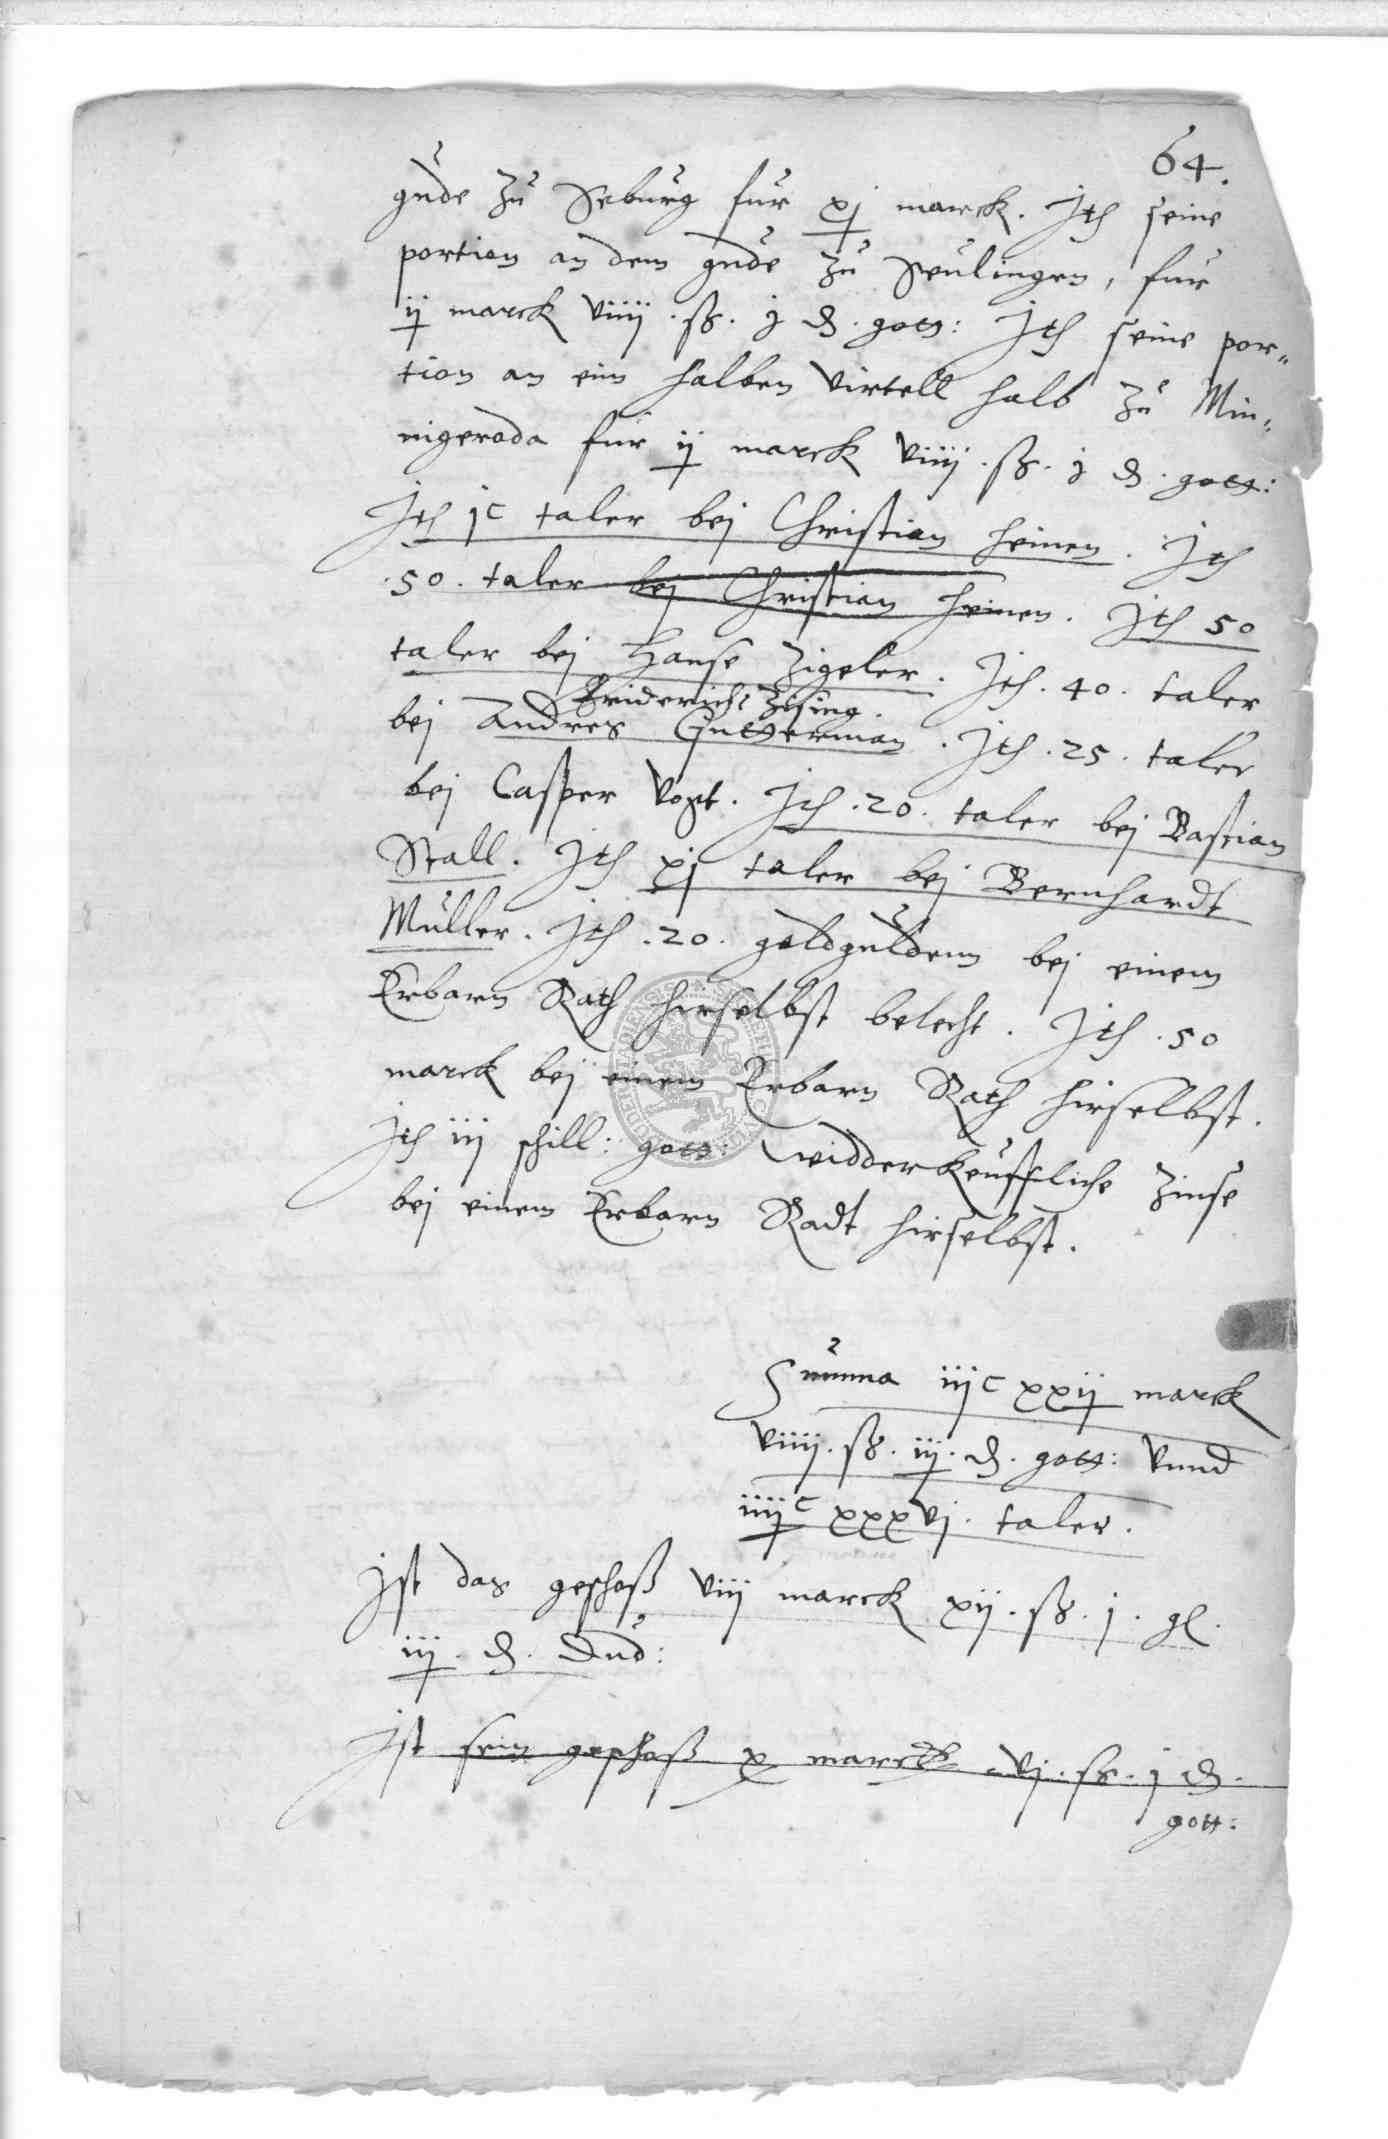 64.
gude zu Seburg fur xj marck. Jth seine
portion an dem gude zu Seulingen, fur
ij marck viiij. ß. j ₰. gott: Jth seine por„
tion an eim halben virtell halb zu Min„
nigeroda fur ij marck viiij. ß. j ₰. gott:
Jth jc taler bej Christian heinen. Jth
.50. taler bej Christian heinen. Jth 50
taler bej Hanse Zigeler. Jth. 40. taler
Friderich Zising.
bej Andres Gutterman. Jth. 25. taler
bej Casper Vogt. Jth. 20. taler bej Bastian
Stall. Jth xj taler bej Bernhardt
Müller. Jth. 20. goldguldenn bej einem
Erbarn Rath hirselbst belecht. Jth. 50
marck bej einem Erbarn Rath hirselbst.
Jth iij schill: gott: widderkeuffliche Zinse
bej einem Erbarn Radt hirselbst.
Summa iijc xxij marck
viiij. ß. iij. ₰. gott: vnnd
iiijc xxxvj. taler.
Jst das geschoß viij marck xij. ß. j. gl.
iij. ₰. Dud:
Jst sein geschoß x marck vj. ß. j ₰.
gott: